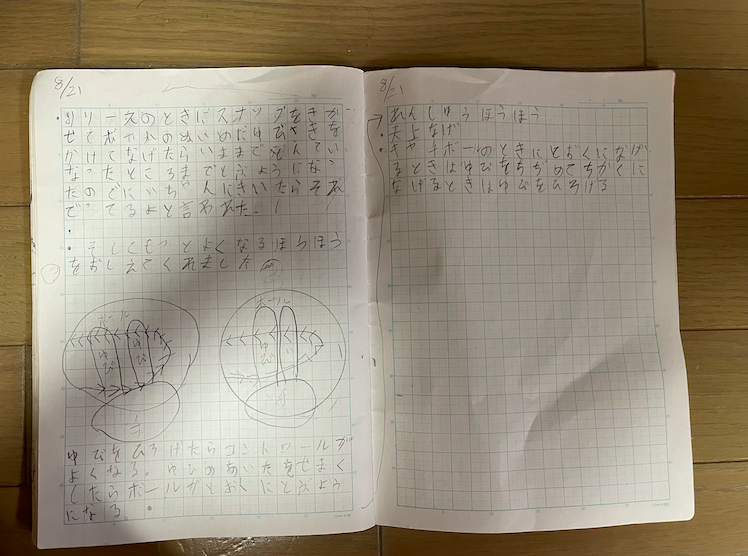 8/21
・リリースのときにスナップをきか
せてボールのぬいめにゆびさきを
かけてなげたらいままでとんでい
なかったところまでとぶようになっ
たのでにいちゃんにきいたらそれ
であってるよと言われた。
・そしてもっとよくなるほうほう
をおしえてくれました
ボール
ゆび
ゆび
ボール
ゆび
ゆびをひろげたらコントロールが
よくなる。ゆびのあいだをせまく
したらボールがとおくにとぶよう
になる。
8/21
れんしゅうほうほう
・天上なげ
・キャッチボールのときにとおくになげ
るときはゆびをちぢめてちかくに
なげるときはゆびをひろげる